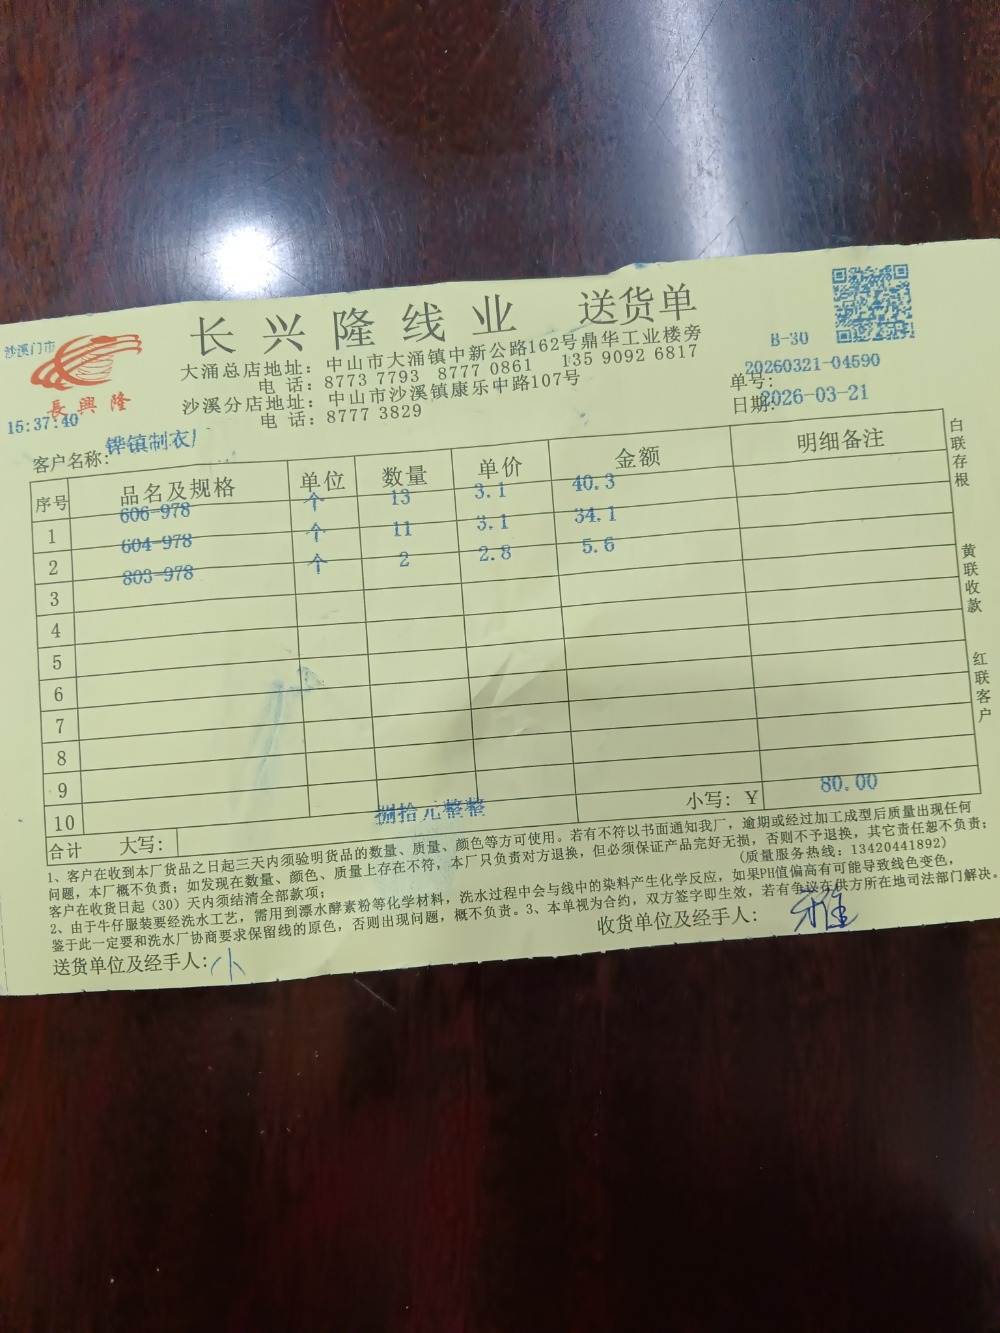 长兴隆线业 送货单
沙溪门市
長興隆
15:37:40
大涌总店地址：中山市大涌镇中新公路162号鼎华工业楼旁
电 话：8773 7793 8777 0861 135 9092 6817
沙溪分店地址：中山市沙溪镇康乐中路107号
电 话：8777 3829
B-30
单号：20260321-04590
日期：2026-03-21
客户名称：铧镇制衣厂
序号 品名及规格 单位 数量 单价 金额 明细备注
1 606-978 个 13 3.1 40.3
2 604-978 个 11 3.1 34.1
3 803-978 个 2 2.8 5.6
4
5
6
7
8
9
10
合计 大写：捌拾元整整 小写：Y 80.00
白联存根
黄联收款
红联客户
1、客户在收到本厂货品之日起三天内须验明货品的数量、质量、颜色等方可使用。若有不符以书面通知我厂，逾期或经过加工成型后质量出现任何
问题，本厂概不负责；如发现在数量、颜色、质量上存在不符，本厂只负责对方退换，但必须保证产品完好无损，否则不予退换，其它责任恕不负责；
客户在收货日起（30）天内须结清全部款项； (质量服务热线：13420441892)
2、由于牛仔服装要经洗水工艺，需用到漂水酵素粉等化学材料，洗水过程中会与线中的染料产生化学反应，如果PH值偏高有可能导致线色变色，
鉴于此一定要和洗水厂协商要求保留线的原色，否则出现问题，概不负责。3、本单视为合约，双方签字即生效，若有争议在供方所在地司法部门解决。
送货单位及经手人：小 收货单位及经手人：